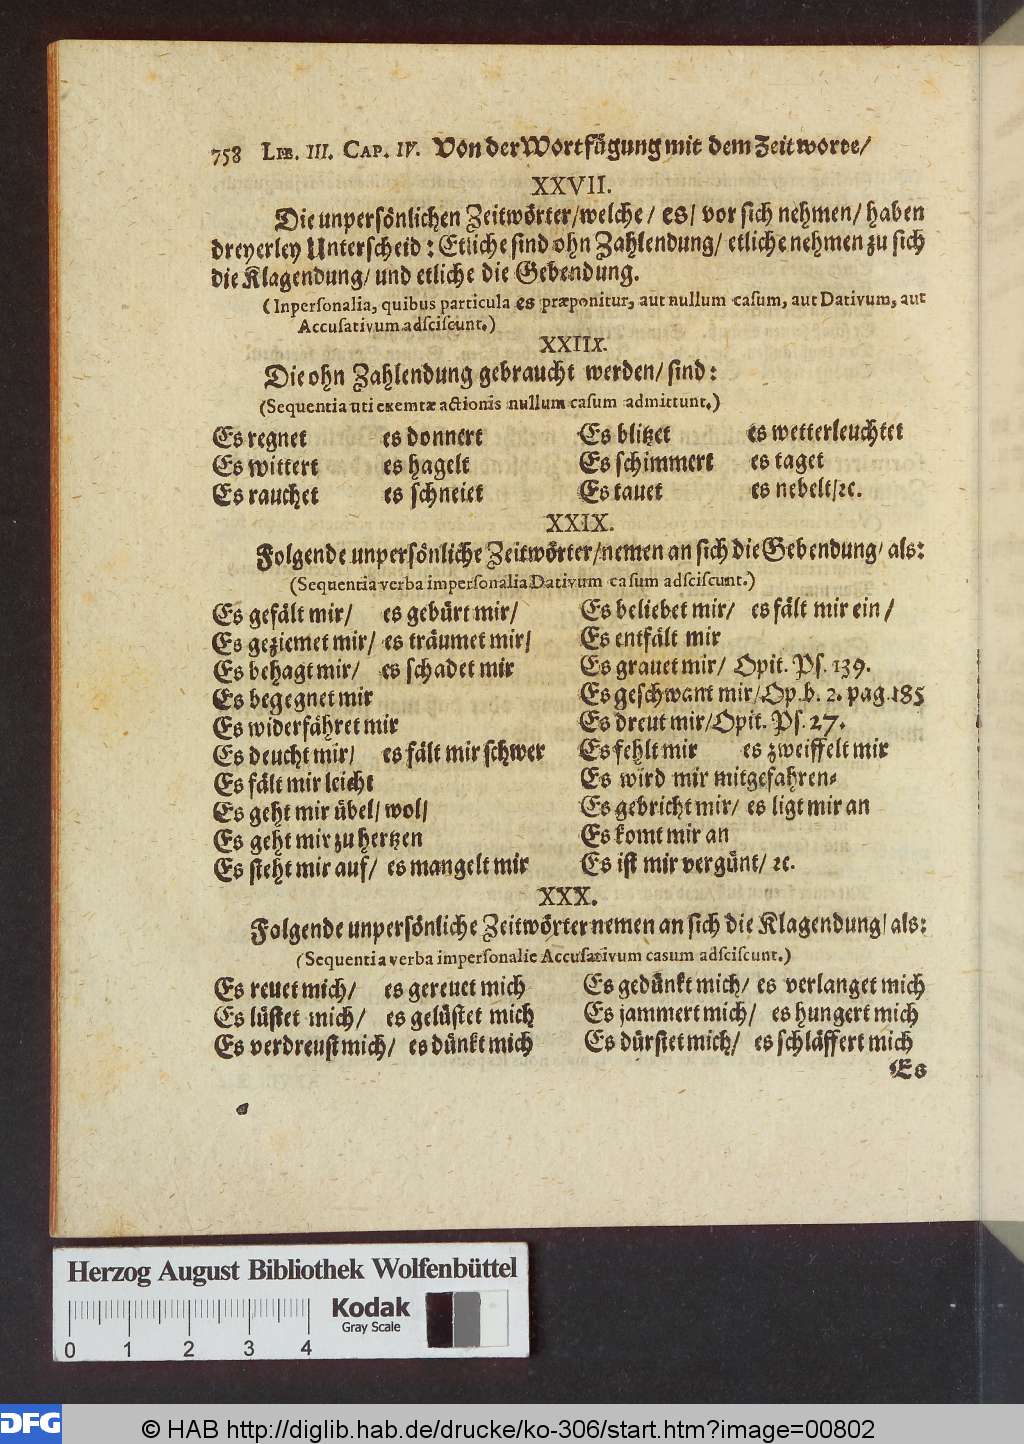 758 Lib. III. Cap. IV. Von der Wortfügung mit dem Zeitworte/
XXVII.
Die unpersönlichen Zeitwörter/welche/ es/ vor sich nehmen/ haben
dreyerley Unterscheid: Etliche sind ohn Zahlendung/ etliche nehmen zu sich
die Klagendung/ und etliche die Gebendung.
(Inpersonalia, quibus particula es præponitur, aut nullum casum, aut Dativum, aut
Accusativum adsciscunt.)
XXIIX.
Die ohn Zahlendung gebraucht werden/ sind:
(Sequentia uti exemtæ actionis nullum casum admittunt.)
Es regnet es donnert Es blitzet es wetterleuchtet
Es wittert es hagelt Es schimmert es taget
Es rauchet es schneiet Es tauet es nebelt/ꝛc.
XXIX.
Folgende unpersönliche Zeitwörter/nemen an sich die Gebendung/ als:
(Sequentia verba impersonalia Dativum casum adsciscunt.)
Es gefält mir/ es gebürt mir/ Es beliebet mir/ es fält mir ein/
Es geziemet mir/ es träumet mir/ Es entfält mir
Es behagt mir/ es schadet mir Es grauet mir/ Opit. Ps. 139.
Es begegnet mir Es geschwant mir/Op. b. 2. pag. 185
Es widerfähret mir Es dreut mir/Opit. Ps. 27.
Es deucht mir/ es fält mir schwer Es fehlt mir es zweiffelt mir
Es fält mir leicht Es wird mir mitgefahren⸗
Es geht mir übel/ wol/ Es gebricht mir/ es ligt mir an
Es geht mir zu hertzen Es komt mir an
Es steht mir auf/ es mangelt mir Es ist mir vergünt/ ꝛc.
XXX.
Folgende unpersönliche Zeitwörter nemen an sich die Klagendung/ als:
(Sequentia verba impersonalie Accusativum casum adsciscunt.)
Es reuet mich/ es gereuet mich Es gedünkt mich/ es verlanget mich
Es lüstet mich/ es gelüstet mich Es jammert mich/ es hungert mich
Es verdreust mich/ es dünkt mich Es dürstet mich/ es schläffert mich
Es
Herzog August Bibliothek Wolfenbüttel
Kodak
Gray Scale
0 1 2 3 4
DFG
© HAB http://diglib.hab.de/drucke/ko-306/start.htm?image=00802